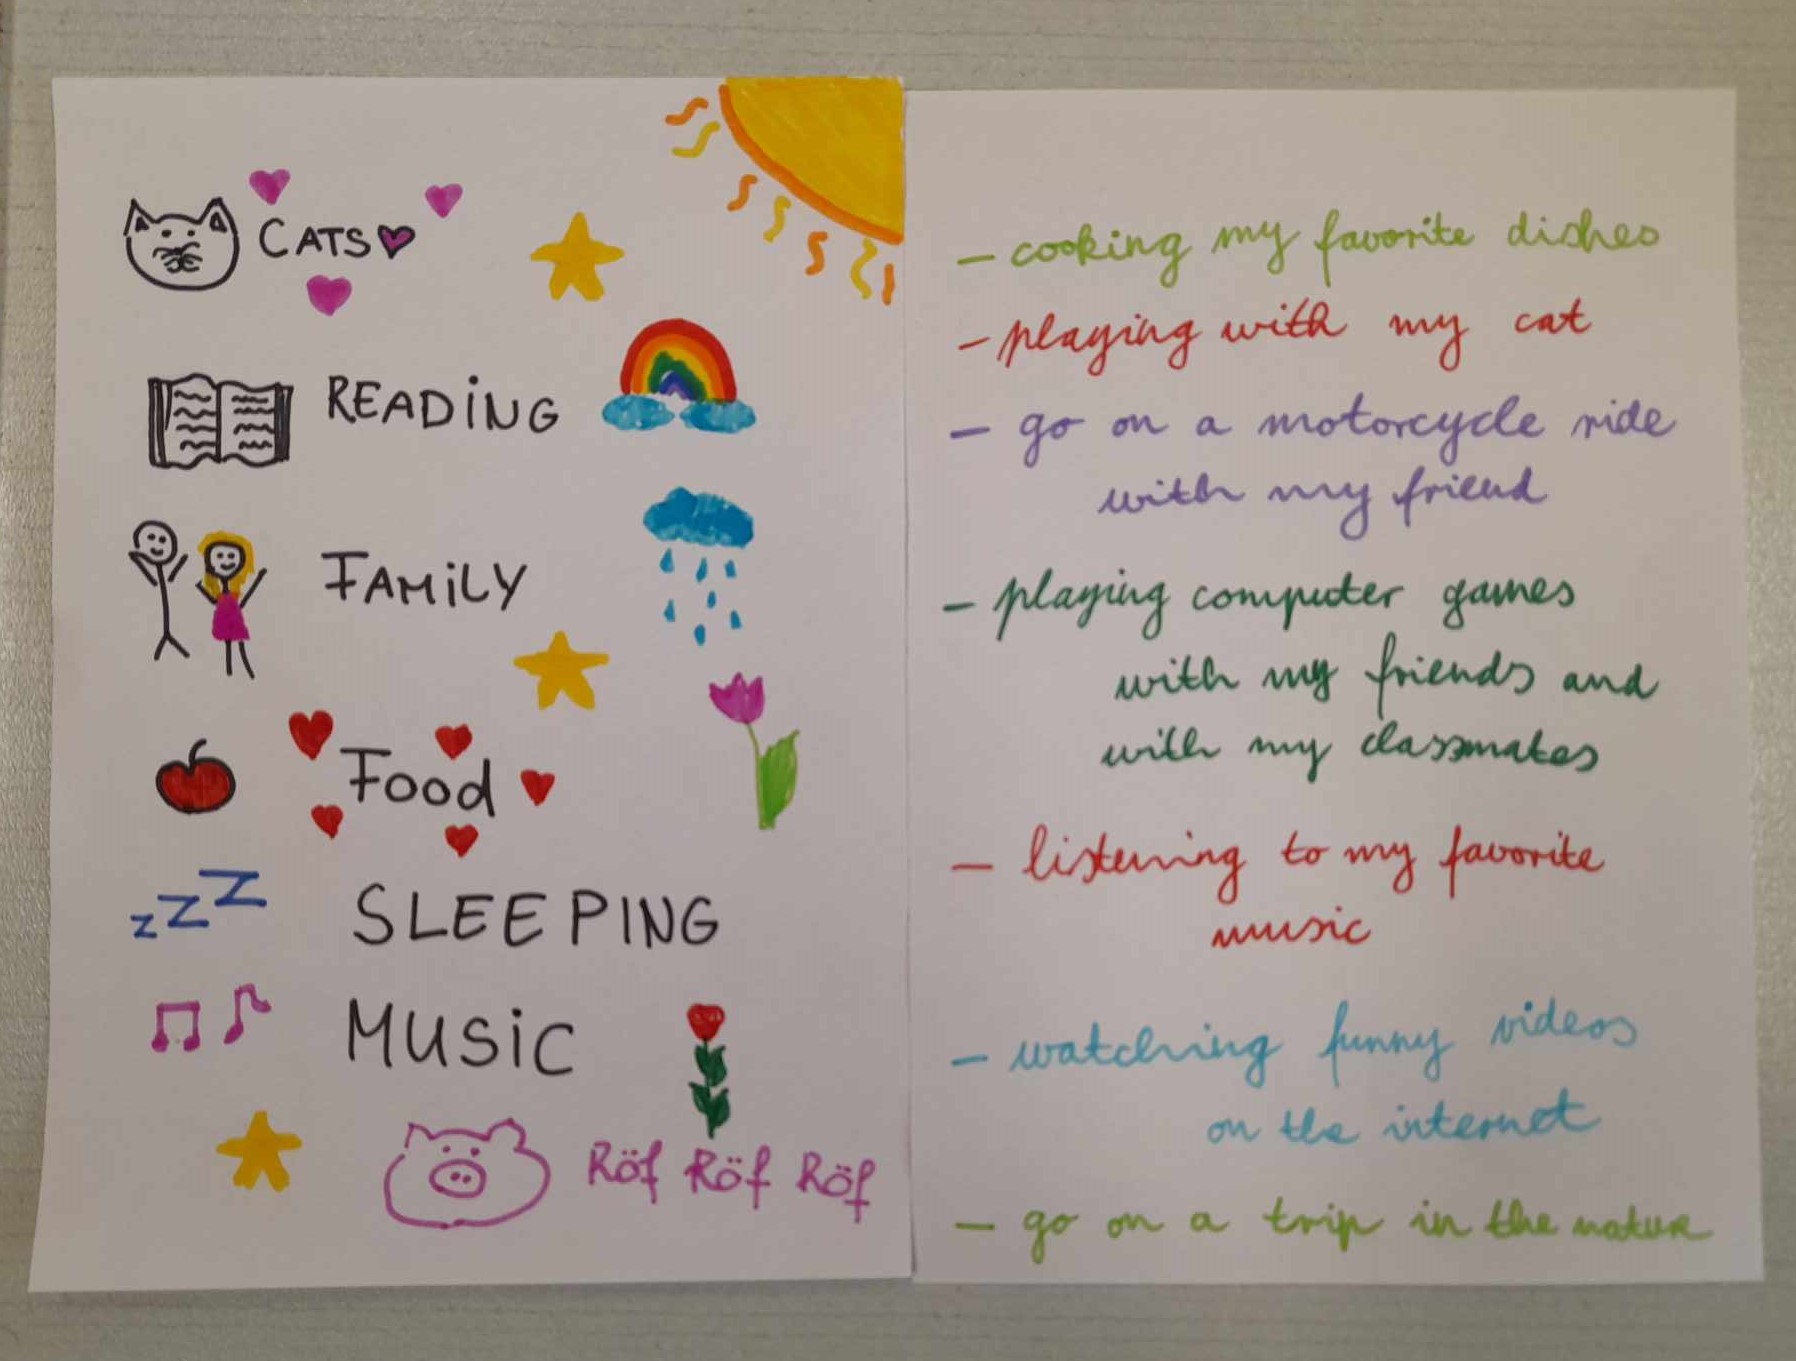 CATS
READING
FAMILY
Food
zzZ
SLEEPING
MUSIC
Röf Röf Röf
- cooking my favorite dishes
- playing with my cat
- go on a motorcycle ride
with my friend
- playing computer games
with my friends and
with my classmates
- listening to my favorite
music
- watching funny videos
on the internet
- go on a trip in the nature